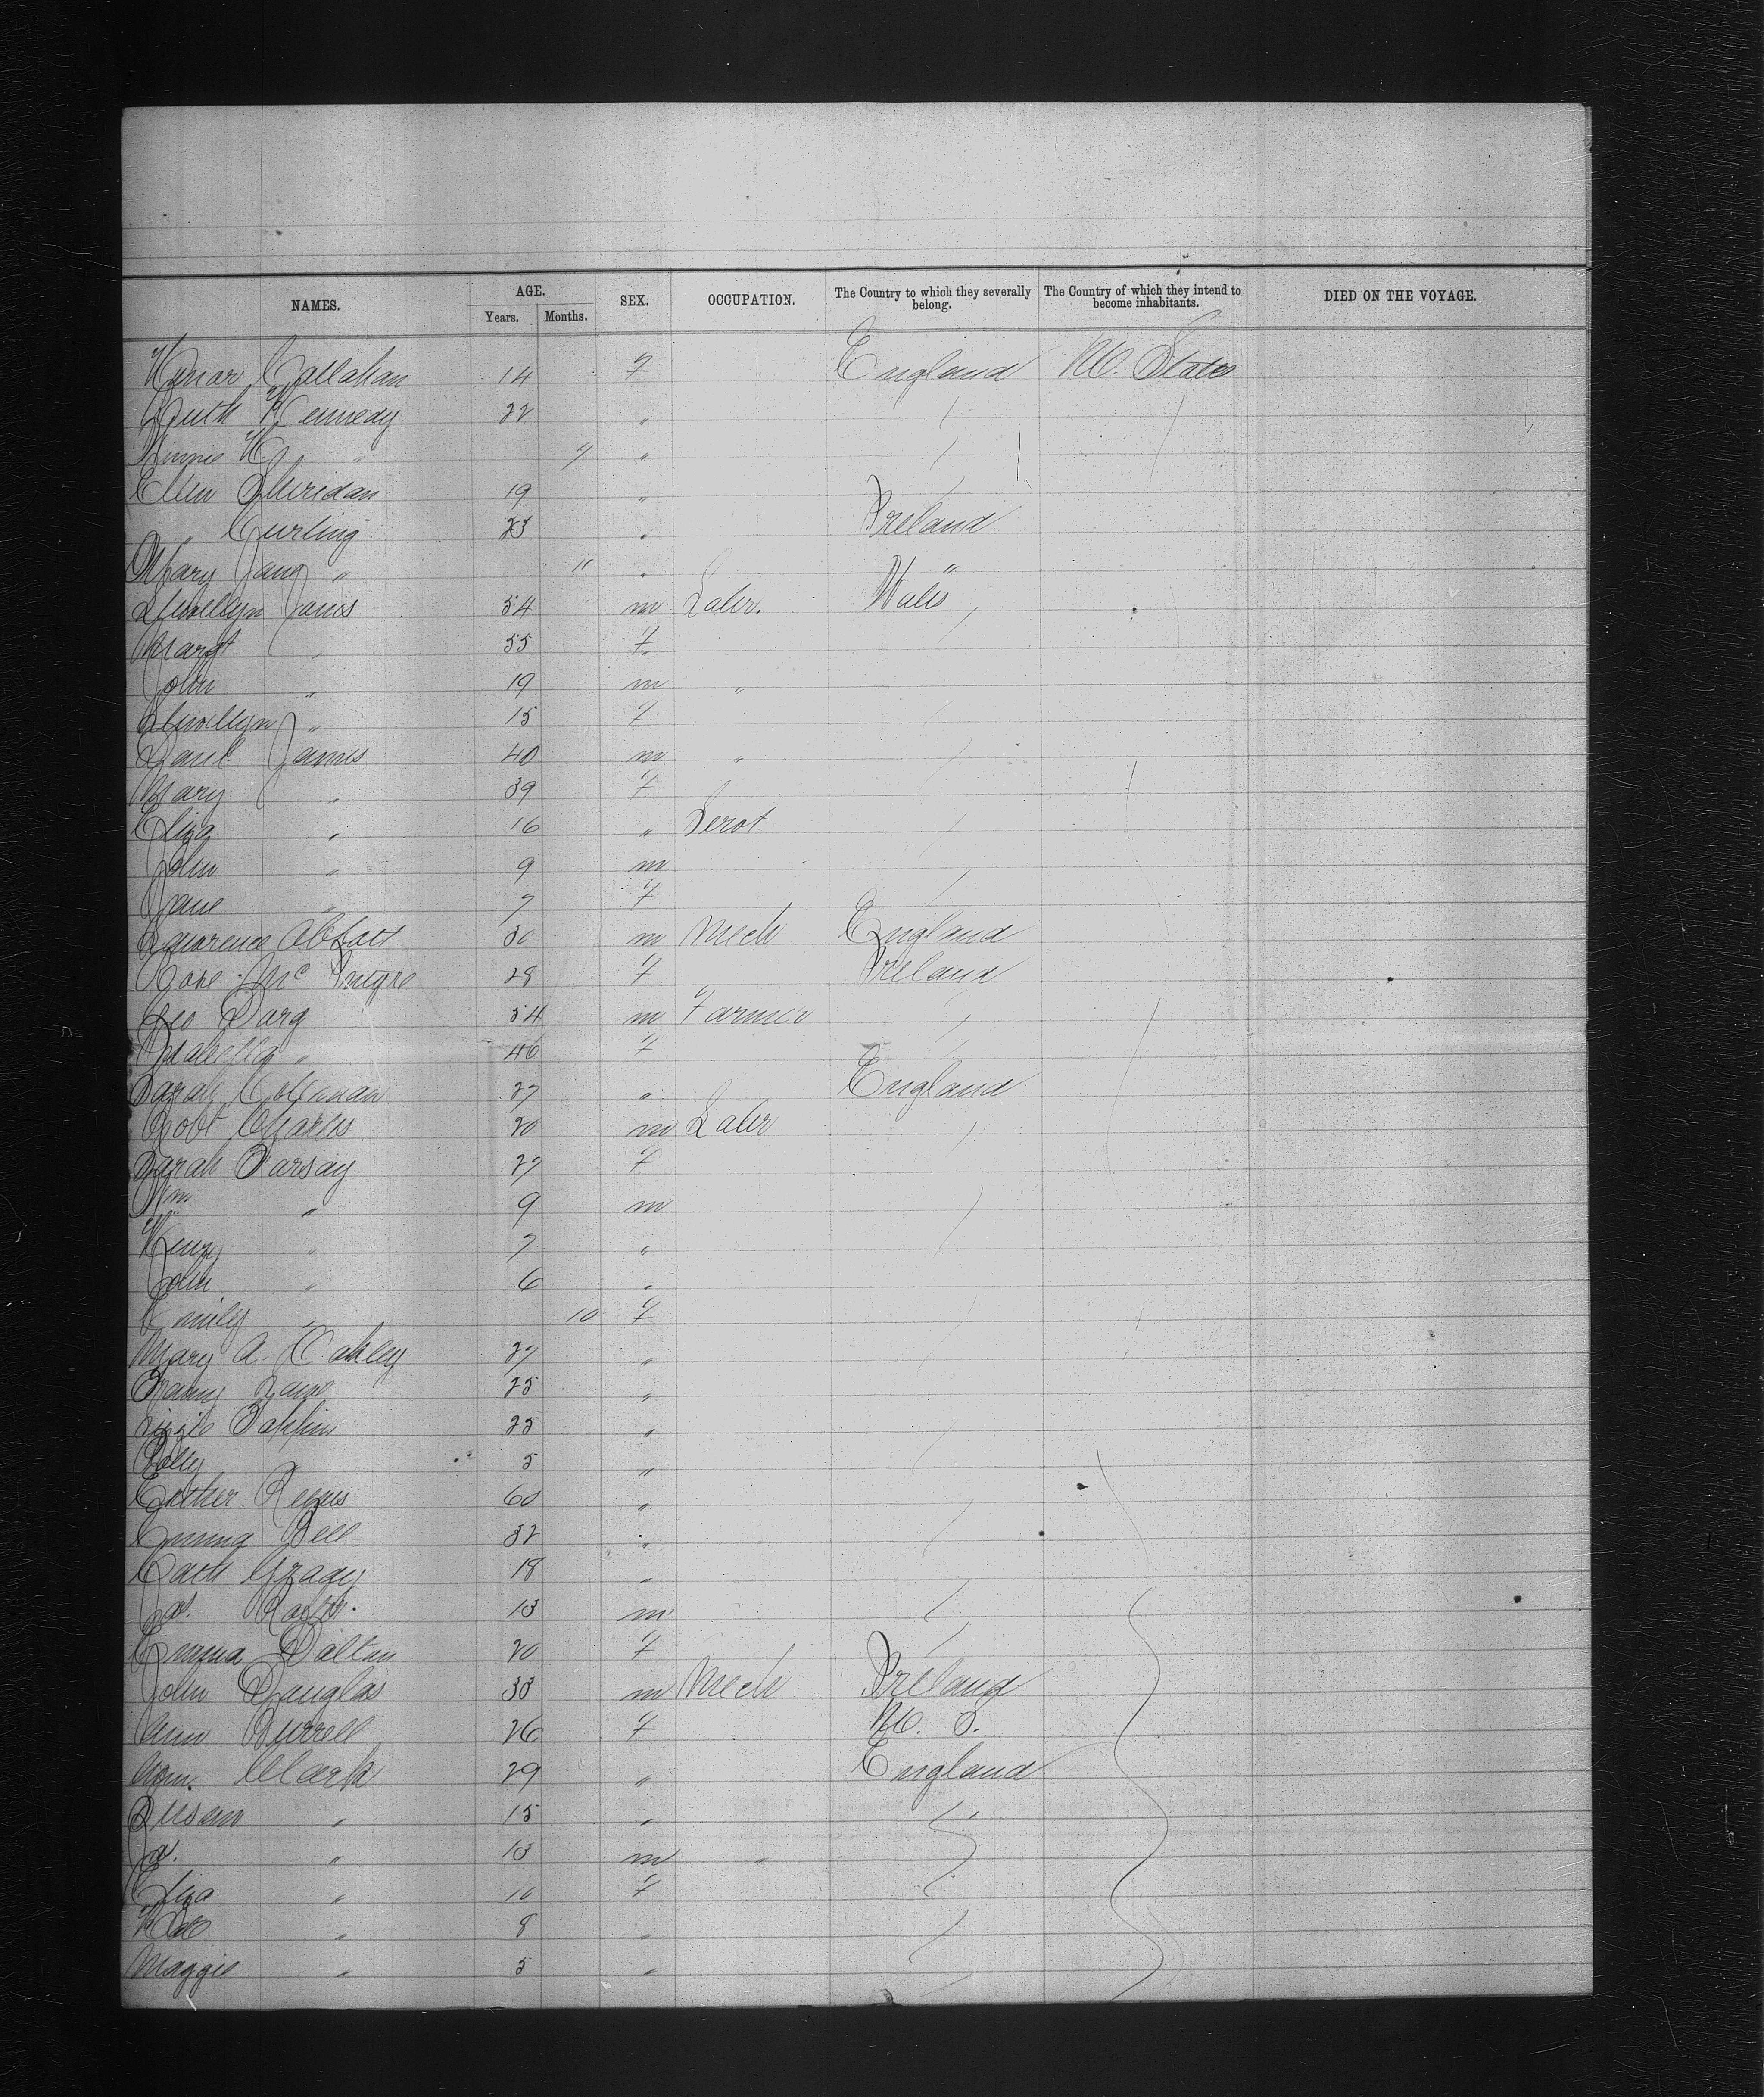 NAMES. AGE. SEX. OCCUPATION. The Country to which they severally belong. The Country of which they intend to become inhabitants. DIED ON THE VOYAGE.
Years. Months.
Callahan 14 f England U. States
Ruth Kennedy 22 "
Minnie K. " 7 "
Ellen Sheridan 19 "
" Curling 23 " Ireland
Mary Jane " 11 " "
Llewellyn James 54 m Labr. Wales
Margt " 55 f
John " 19 m "
Llewellyn " 15 f
Danl James 40 m "
Mary " 39 f
Eliza " 16 " Servt
John " 9 m
Jane " 7 f
Lawrence Abbott 30 m Mech England
Rose McIntyre 28 f Ireland
Geo Darg 54 m Farmer
Isabella " 40 f
Sarah Coleman 27 " England
Robt Charles 20 m Labr
Sarah Dorsay 27 f
Wm " 9 m
Henry " 7 "
John " 6 "
Emily " 10 f
Mary A. Oakley 27 "
Fanny 25 "
Lizzie 25 "
Polly " 5 "
Esther 60 "
Emma Bell 32 "
Cath Grady 18 "
Jas. 13 m
Emma Dalton 20 f
John Douglas 33 m Mech Ireland
Ann Burrell 26 f U. S.
Clark 29 " England
Susan " 15 "
Jas. " 13 m "
Eliza " 10 f
" 8 "
Maggie " 5 "